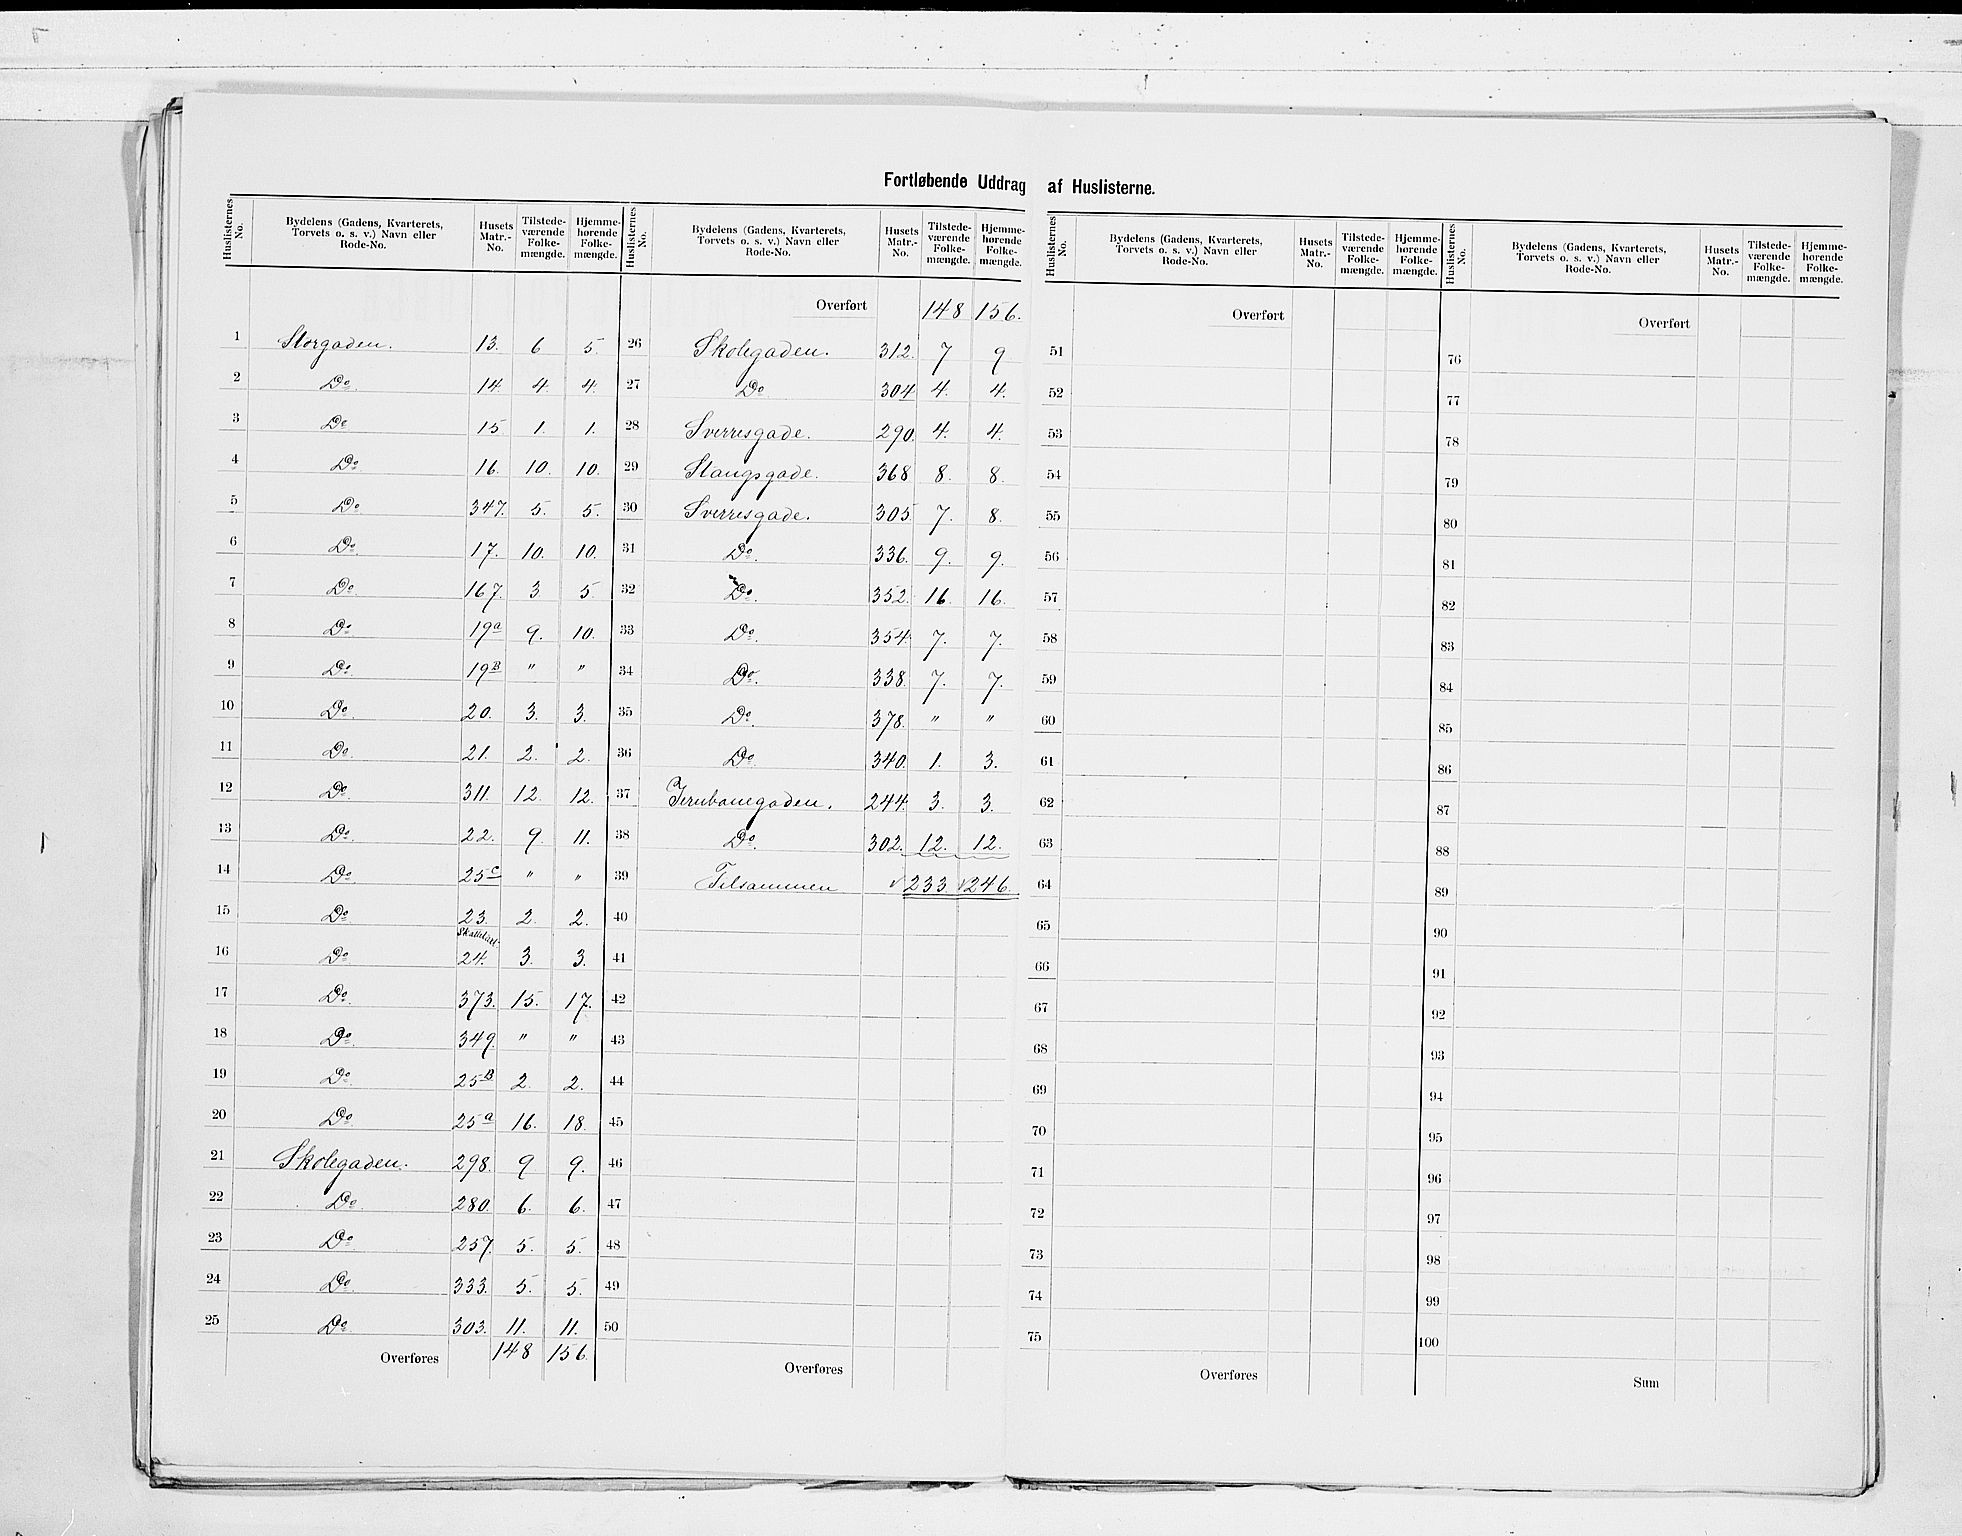 Fortløbende Uddrag af Huslisterne.
Huslisternes No. | Bydelens (Gadens, Kvarterets, Torvets o. s. v.) Navn eller Rode-No. | Husets Matr.-No. | Tilstedeværende Folkemængde. | Hjemmehørende Folkemængde.
1 Storgaden. 13. 6 5.
2 Do. 14. 4. 4.
3 Do 15. 1. 1.
4 Do 16. 10. 10.
5 Do. 347. 5. 5.
6 Do. 17. 10. 10.
7 Do. 167. 3. 5.
8 Do 19a 9. 10.
9 Do. 19B " "
10 Do. 20. 3. 3.
11 Do. 21. 2. 2.
12 Do. 311. 12. 12.
13 Do. 22. 9. 11.
14 Do. 25c " "
15 Do. 23. 2. 2.
16 Do. 24. 3. 3.
17 Do. 373. 15. 17.
18 Do. 349. " "
19 Do. 25B 2. 2.
20 Do. 25a 16. 18.
21 Skolegaden. 298. 9 9.
22 Do. 280. 6. 6.
23 Do. 257. 5. 5.
24 Do. 333. 5. 5.
25 Do. 303. 11. 11.
Overføres 148 156.
Huslisternes No. | Bydelens (Gadens, Kvarterets, Torvets o. s. v.) Navn eller Rode-No. | Husets Matr.-No. | Tilstedeværende Folkemængde. | Hjemmehørende Folkemængde.
Overført 148 156.
26 Skolegaden. 312. 7 9
27 Do. 304 4. 4.
28 Sverresgade. 290. 4. 4.
29 Stangsgade. 368 8. 8.
30 Sverresgade. 305. 7. 8.
31 Do. 336. 9. 9.
32 Do. 352. 16. 16.
33 Do. 354. 7. 7.
34 Do. 338. 7. 7.
35 Do. 378. " "
36 Do. 340. 1. 3.
37 Jernbanegaden. 244. 3. 3.
38 Do. 302. 12. 12.
39 Tilsammen 233 246.
40
41
42
43
44
45
46
47
48
49
50
Overføres
Huslisternes No. | Bydelens (Gadens, Kvarterets, Torvets o. s. v.) Navn eller Rode-No. | Husets Matr.-No. | Tilstedeværende Folkemængde. | Hjemmehørende Folkemængde.
Overført
51
52
53
54
55
56
57
58
59
60
61
62
63
64
65
66
67
68
69
70
71
72
73
74
75
Overføres
Huslisternes No. | Bydelens (Gadens, Kvarterets, Torvets o. s. v.) Navn eller Rode-No. | Husets Matr.-No. | Tilstedeværende Folkemængde. | Hjemmehørende Folkemængde.
Overført
76
77
78
79
80
81
82
83
84
85
86
87
88
89
90
91
92
93
94
95
96
97
98
99
100
Sum